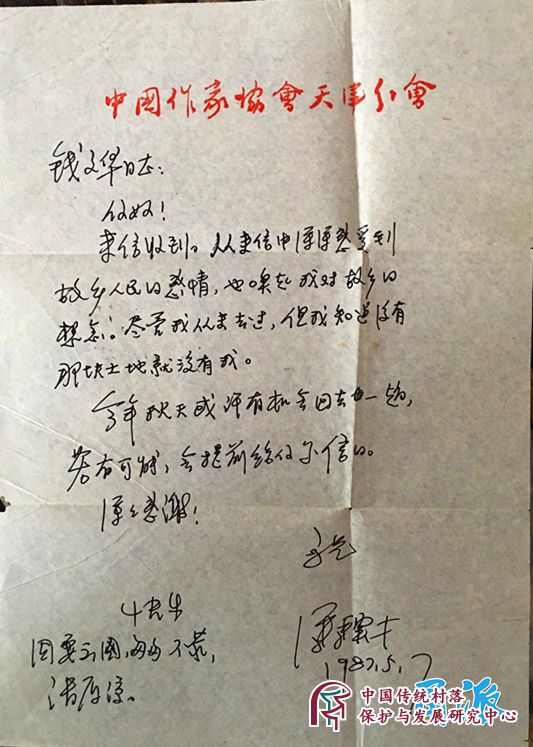 中國作家協會天津分會
钱文华同志：
你好！
来信收到。从来信中深深感受到
故乡人民的感情，也唤起我对故乡的
想念。尽管我从未去过，但我知道没有
那块土地就没有我。
今年秋天或许有机会回去一趟，
若有可能，会提前给你去信的。
深深感谢！
冯骥才
1987.5.7
因要出国，匆匆不恭，
请原谅。
中国传统村落
保护与发展研究中心
派